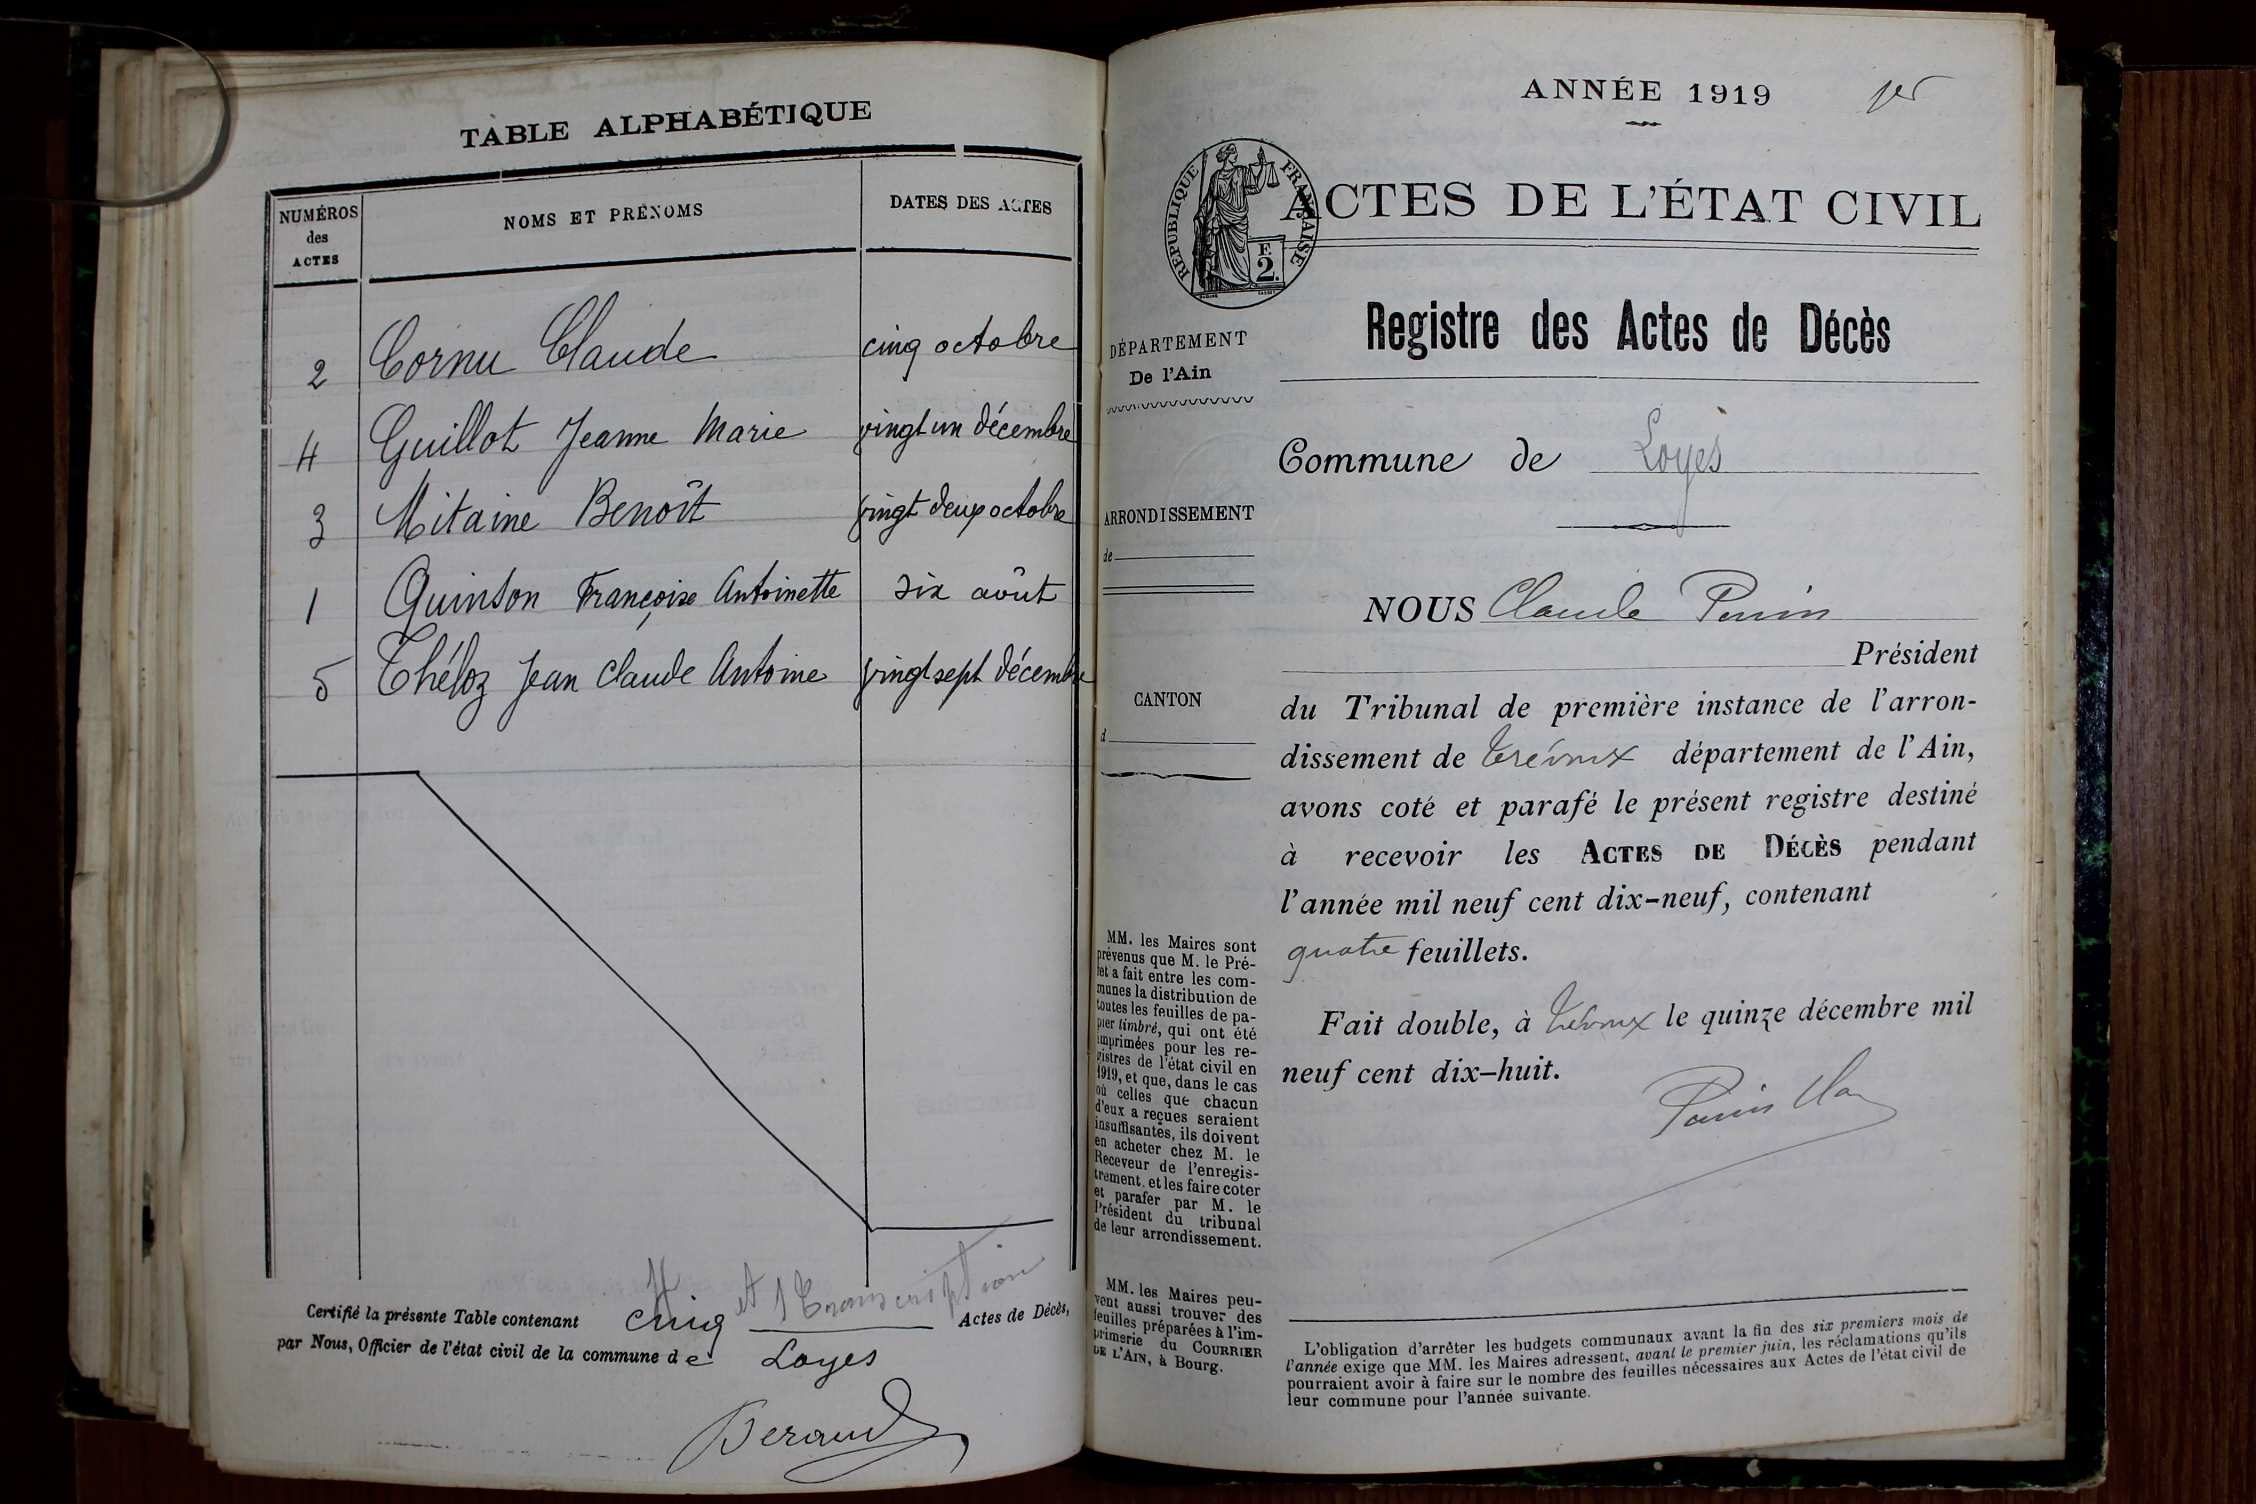 TABLE ALPHABÉTIQUE
NUMÉROS des ACTES
NOMS ET PRÉNOMS
DATES DES ACTES
2 Cornu Claude cinq octobre
4 Guillot Jeanne Marie vingt un décembre
3 Mitaine Benoît vingt deux octobre
1 Quinson Françoise Antoinette six août
5 Théloz Jean Claude Antoine vingt sept décembre
4 et 1 transcription
Certifié la présente Table contenant cinq Actes de Décès,
par Nous, Officier de l'état civil de la commune de Loyes
Beraud
ANNÉE 1919
1er
RÉPUBLIQUE FRANÇAISE
F.
2.
ACTES DE L'ÉTAT CIVIL
Registre des Actes de Décès
DÉPARTEMENT
De l'Ain
Commune de Loyes
ARRONDISSEMENT
de
CANTON
d
NOUS Claude Perrin
Président
du Tribunal de première instance de l'arron-
dissement de Trévoux département de l'Ain,
avons coté et parafé le présent registre destiné
à recevoir les ACTES DE DÉCÈS pendant
l'année mil neuf cent dix-neuf, contenant
quatre feuillets.
Fait double, à Trévoux le quinze décembre mil
neuf cent dix-huit.
MM. les Maires sont
prévenus que M. le Pré-
fet a fait entre les com-
munes la distribution de
toutes les feuilles de pa-
pier timbré, qui ont été
imprimées pour les re-
gistres de l'état civil en
1919, et que, dans le cas
où celles que chacun
d'eux a reçues seraient
insuffisantes, ils doivent
en acheter chez M. le
Receveur de l'enregis-
trement, et les faire coter
et parafer par M. le
Président du tribunal
de leur arrondissement.
MM. les Maires peu-
vent aussi trouver des
feuilles préparées à l'im-
primerie du COURRIER
DE L'AIN, à Bourg.
L'obligation d'arrêter les budgets communaux avant la fin des six premiers mois de
l'année exige que MM. les Maires adressent, avant le premier juin, les réclamations qu'ils
pourraient avoir à faire sur le nombre des feuilles nécessaires aux Actes de l'état civil de
leur commune pour l'année suivante.